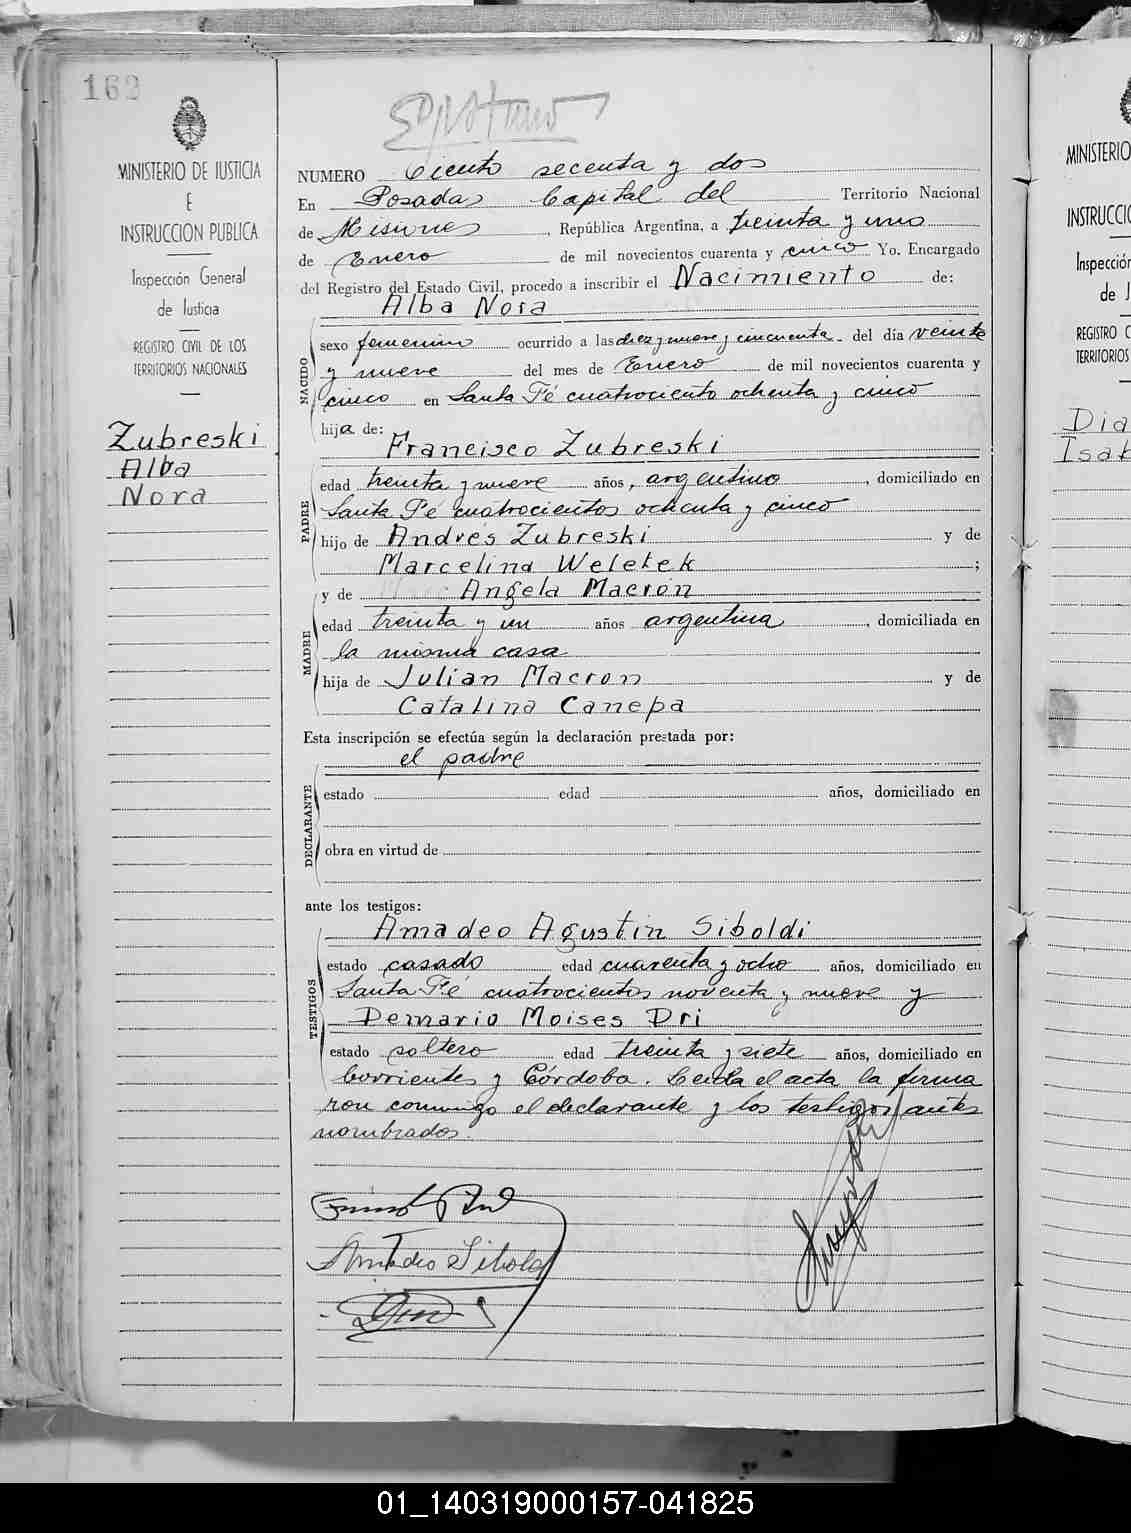 162
MINISTERIO DE JUSTICIA
E
INSTRUCCION PUBLICA
Inspección General
de Justicia
REGISTRO CIVIL DE LOS
TERRITORIOS NACIONALES
Zubreski
Alba
Nora
NUMERO Ciento secenta y dos
En Posadas Capital del Territorio Nacional
de Misiones, República Argentina, a treinta y uno
de Enero de mil novecientos cuarenta y cinco Yo, Encargado
del Registro del Estado Civil, procedo a inscribir el Nacimiento de:
Alba Nora
NACIDO
sexo femenino ocurrido a las diez y nueve y cincuenta del día veinte
y nueve del mes de Enero de mil novecientos cuarenta y
cinco en Santa Fé cuatrociento ochenta y cinco
hija de:
Francisco Zubreski
PADRE
edad treinta y nueve años, argentino, domiciliado en
Santa Fé cuatrocientos ochenta y cinco
hijo de Andrés Zubreski y de
Marcelina Weletek;
y de Angela Macrón
MADRE
edad treinta y un años argentina, domiciliada en
la misma casa
hija de Julian Macron y de
Catalina Canepa
Esta inscripción se efectúa según la declaración prestada por:
el padre
DECLARANTE
estado edad años, domiciliado en
obra en virtud de
ante los testigos:
Amadeo Agustin Siboldi
TESTIGOS
estado casado edad cuarenta y ocho años, domiciliado en
Santa Fé cuatrocientos noventa y nueve y
Demario Moises Dri
estado soltero edad treinta y siete años, domiciliado en
Corrientes y Córdoba. Leida el acta la firma
ron conmigo el declarante y los testigos antes
nombrados.
Amadeo Siboldi
MINISTERIO
INSTRUCCIO
Inspección
de J
REGISTRO C
TERRITORIOS
Dia
Isab
01_140319000157-041825